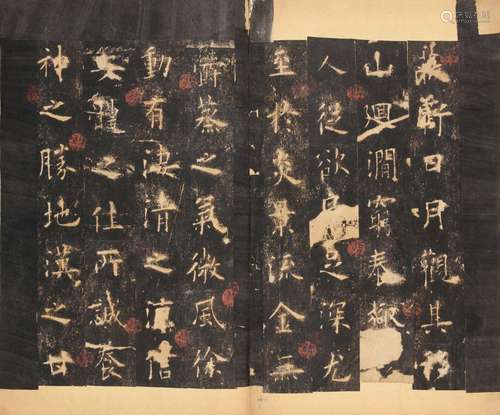 蔽虧日月觀其移
山迴澗窮泰極
人從欲良足深尤
至於炎景流金無
鬱蒸之氣微風徐
動有淒清之涼信
安體之佳所誠養
神之勝地漢之甘